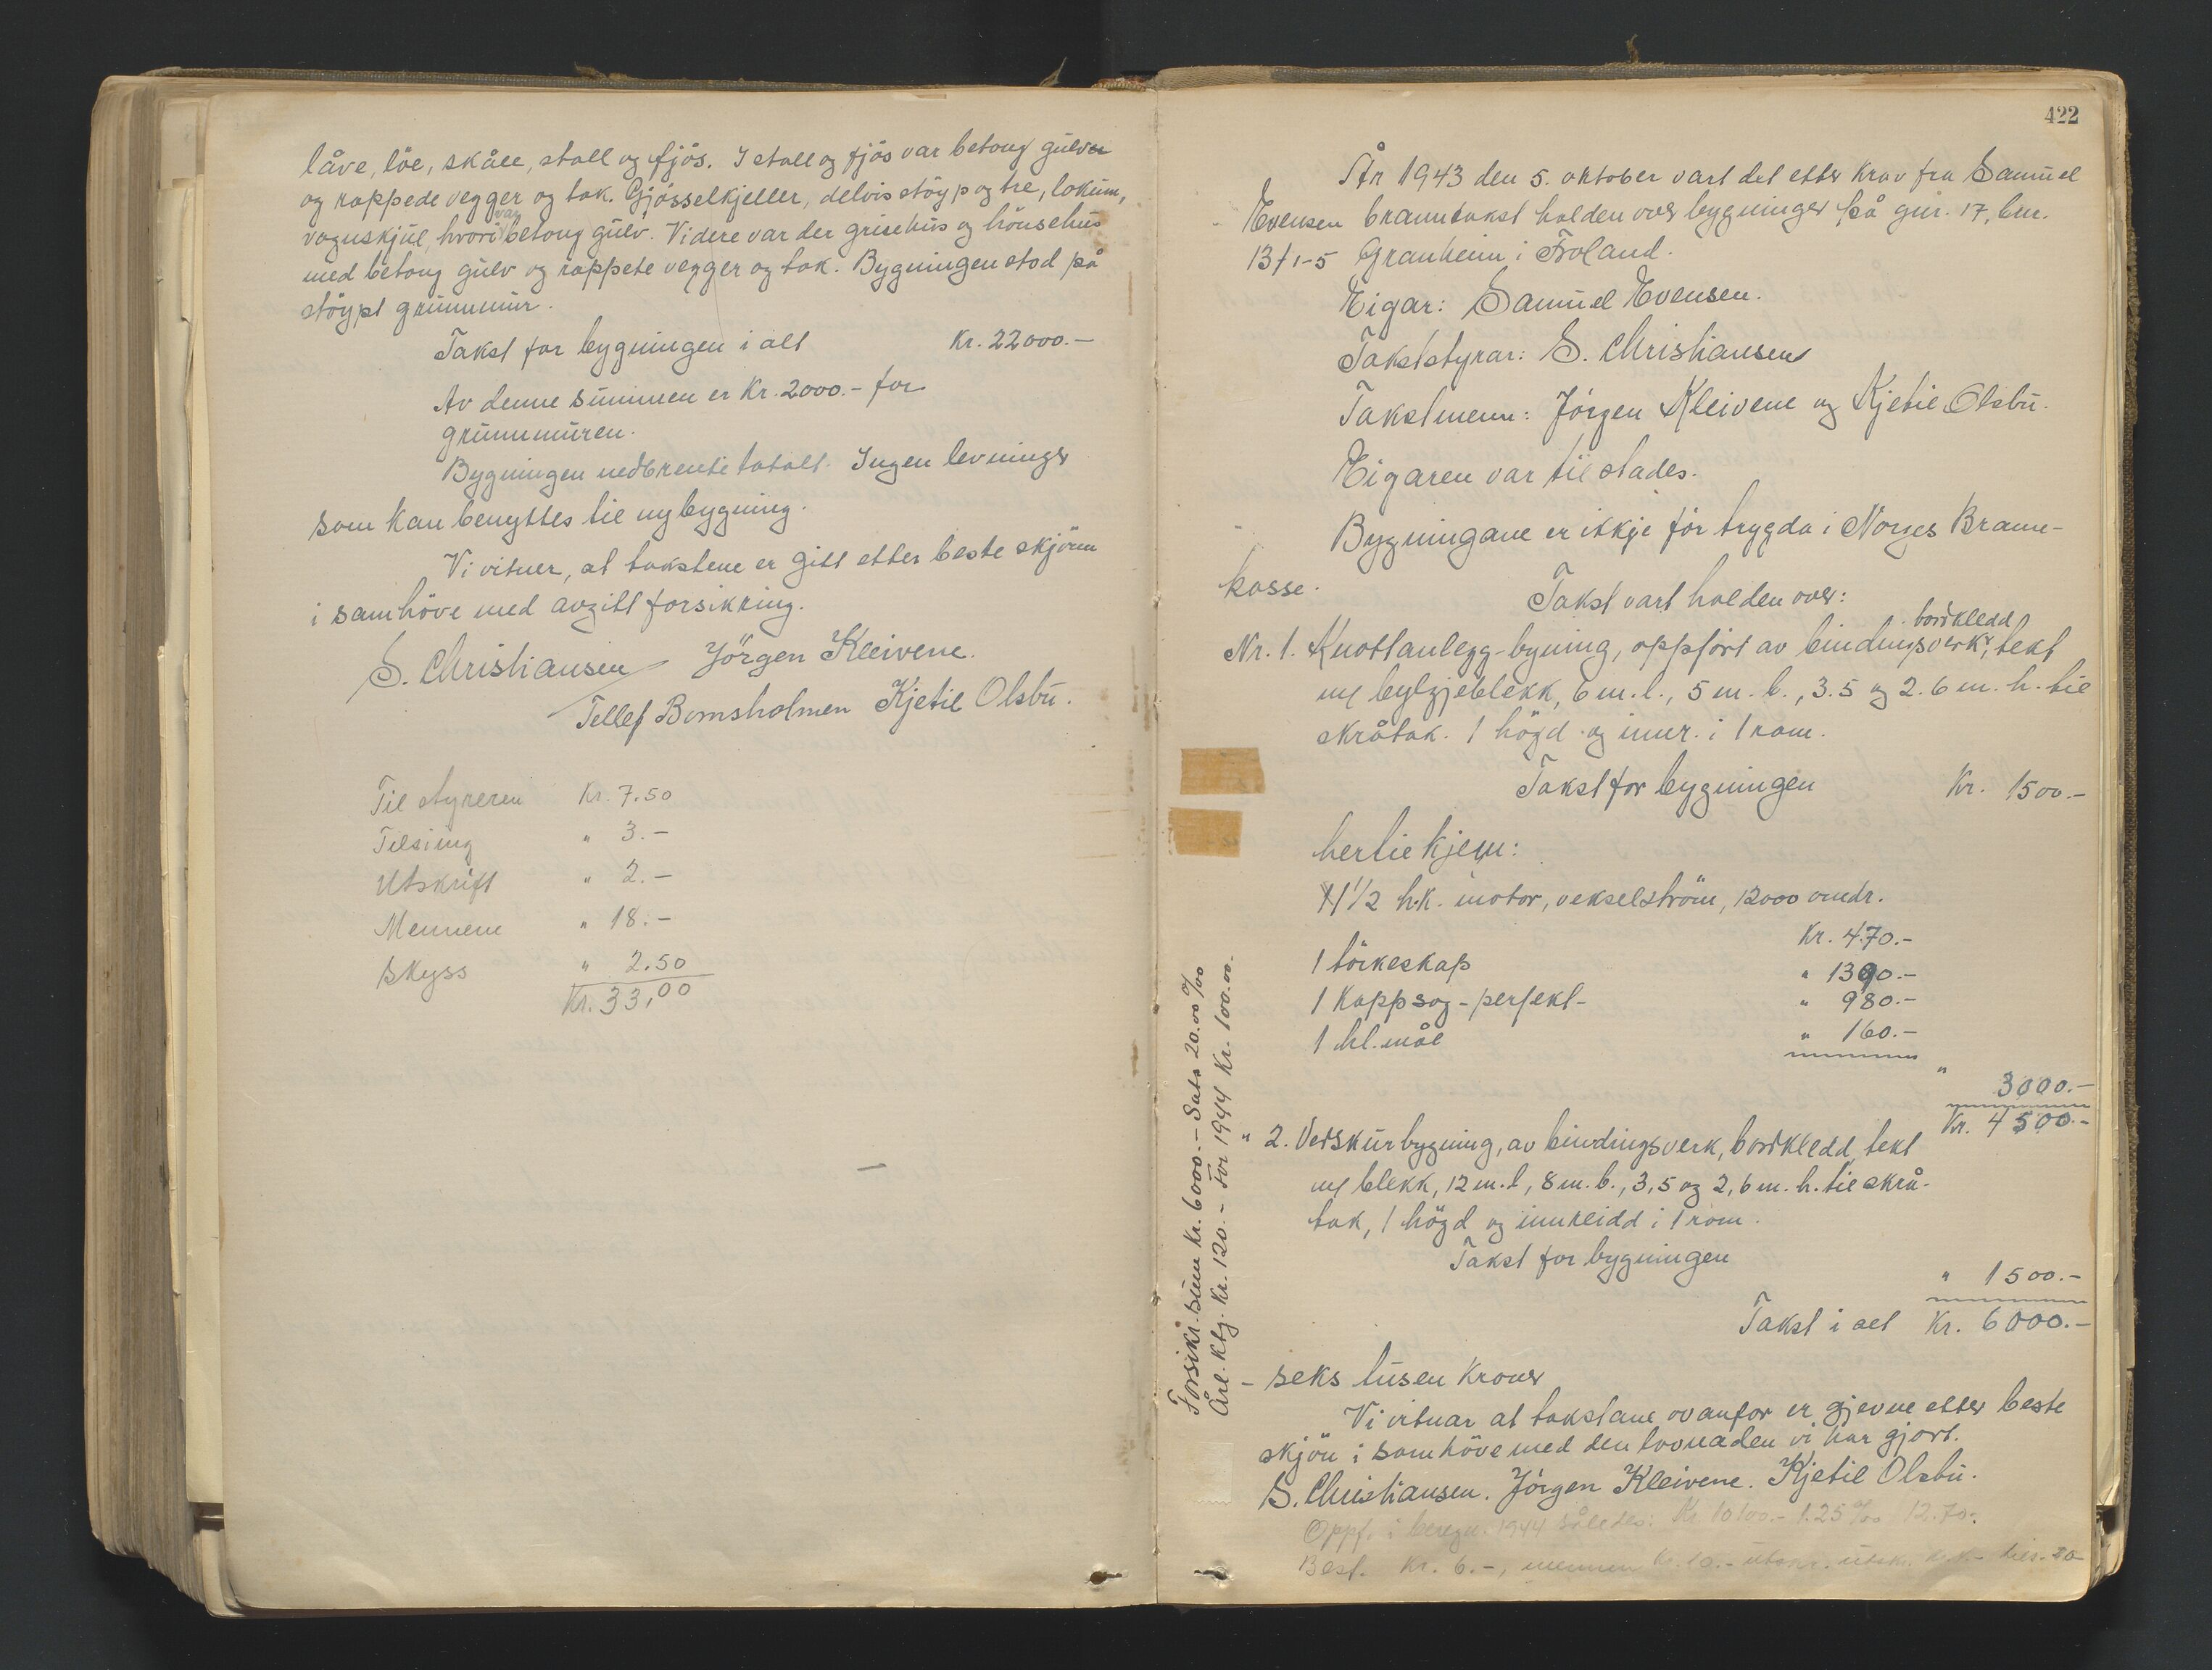 låve, löe, skåle, stall og fjös. I stall og fjös var betong gulver
og rappede vegger og tak. Gjösselkjeller, delvis stöyp og tre, lokum,
vognskjul, hvori var betong gulv. Videre var der grisehus og hönsehus
med betong gulv og rappete vegger og tak. Bygningen stod på
stöypt grunnmur.
Takst for bygningen i alt Kr. 22000.-
Av denne summen er Kr. 2000.- for
grunnmuren.
Bygningen nedbrente totalt. Ingen levninger
som kan benyttes til nybygning.
Vi vitner, at takstene er gitt etter beste skjönn
i samhöve med avgitt forsikring.
S. Christiansen Jörgen Kleivene.
Tellef Bomsholmen Kjetil Olsbu.
Til styreren Kr. 7.50
Tilsiing " 3.-
Utskrift " 2.-
Mennene " 18.-
Skyss " 2.50
Kr. 33,00
422
År 1943 den 5. oktober vart det etter krav fra Samuel
Evensen branntakst halden over bygninger på gnr. 17, bnr.
13/1-5 Granheim i Froland.
Eigar: Samuel Evensen.
Takststyrar: S. Christiansen
Takstmenn: Jörgen Kleivene og Kjetil Olsbu.
Eigaren var til stades.
Bygningane er ikkje för trygda i Norges Brann-
kasse.
Takst vart halden over:
bordkledd
Nr. 1. Knottanlegg-bygning, oppfört av bindingsverk, tekt
m/ bylgjeblekk, 6 m. l., 5 m. b., 3.5 og 2.6 m. h. til
skråtak. 1 högd og innr. i 1 rom.
Takst for bygningen Kr. 1500.-
hertil kjem:
1 1/2 h.k. motor, vekselström, 12000 omdr.
Kr. 470.-
1 törkeskap " 1390.-
1 Kappsag - perfekt- " 980.-
1 hl. mål " 160.-
" 3000.-
Kr. 4500.-
" 2. Vedskurbygning, av bindingsverk, bordkledd, tekt
m/ blekk, 12 m. l, 8 m. b., 3,5 og 2,6 m. h. til skrå-
tak, 1 högd og innreidd i 1 rom.
Takst for bygningen
" 1500.-
Takst i alt Kr. 6000.-
- seks tusen kroner
Vi vitnar at takstane ovanfor er gjevne etter beste
skjön i samhöve med den lovnaden vi har gjort.
S. Christiansen. Jörgen Kleivene. Kjetil Olsbu.
Oppf. i beregn. 1944 således: Kr. 10100.- 1.25 ‰ 12.70.
Best. Kr. 6.-, mennen Kr. 10.-
Forsikr. sum Kr. 6000.- Sats 20.00 ‰
Årl. ktg. Kr. 120.- For 1944 Kr. 100.00.